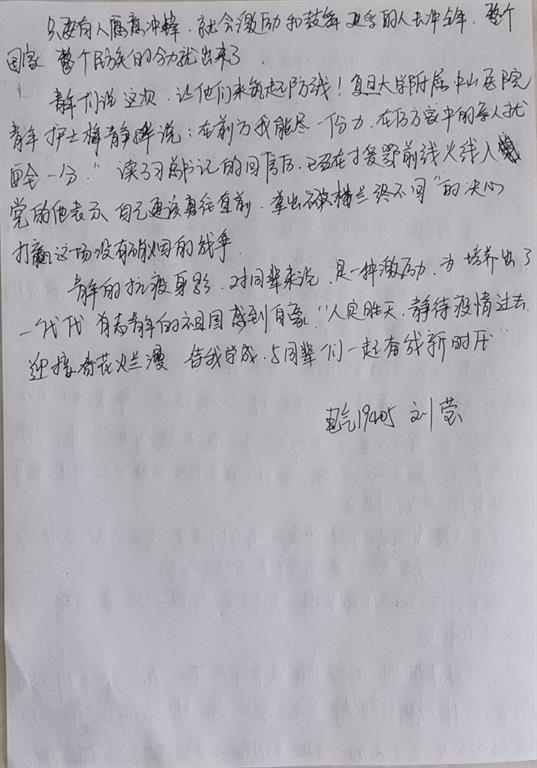 只要有人愿意冲锋，就会激励和鼓舞更多的人去冲锋，整个
国家 整个民族的合力就出来了．
青年们说这次，让他们来筑起防线！复旦大学附属中山医院
青年护士 静 说：在前方我能尽一份力，在后方家中的亲人就
安全一分．" 读了习总书记的回信后，已经在支援鄂前线火线入
党的他表示 自己更该勇往直前，拿出"不破楼兰终不回"的决心
打赢这场没有硝烟的战争
青年的抗疫身影，对同辈来说，是一种激励，为培养出了
一代代 有志青年的祖国感到自豪．"人定胜天，静待疫情过去，
迎接春花烂漫 待我学成，与同辈们一起奋战新时代"
电气19405 刘莹